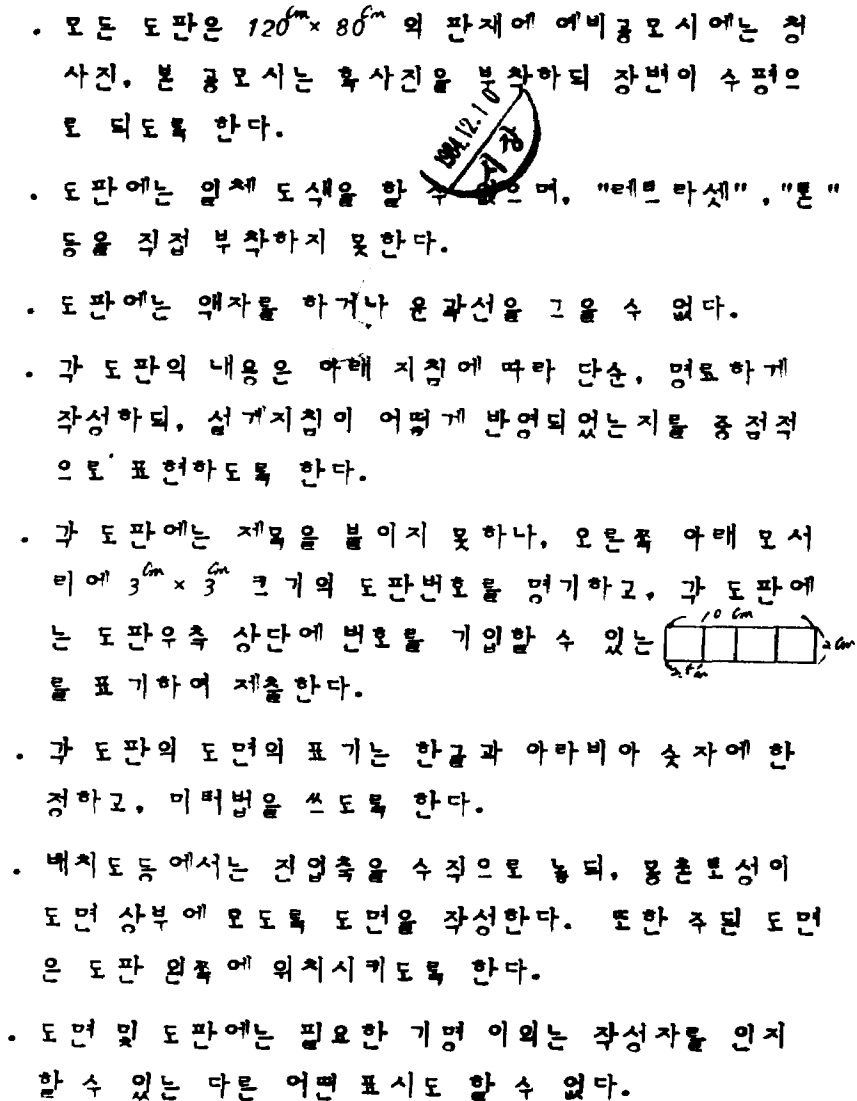 . 모든 도판은 120cm× 80cm의 판재에 예비공모시에는 청
사진, 본 공모시는 흑사진을 부착하되 장변이 수평으
로 되도록 한다.
1984.12.10
. 도판에는 일체 도색을 할 수 없으며, "레트라셋", "톤"
등을 직접 부착하지 못한다.
. 도판에는 액자를 하거나 윤곽선을 그을 수 없다.
. 각 도판의 내용은 아래 지침에 따라 단순, 명료하게
작성하되, 설계지침이 어떻게 반영되었는지를 중점적
으로 표현하도록 한다.
. 각 도판에는 제목을 붙이지 못하나, 오른쪽 아래 모서
리에 3cm × 3cm 크기의 도판번호를 명기하고, 각 도판에
10 cm
는 도판우측 상단에 번호를 기입할 수 있는 2cm
2.5cm
를 표기하여 제출한다.
. 각 도판의 도면의 표기는 한글과 아라비아 숫자에 한
정하고, 미터법을 쓰도록 한다.
. 배치도등에서는 진입축을 수직으로 놓되, 몽촌토성이
도면 상부에 오도록 도면을 작성한다. 또한 주된 도면
은 도판 왼쪽에 위치시키도록 한다.
. 도면 및 도판에는 필요한 기명 이외는 작성자를 인지
할 수 있는 다른 어떤 표시도 할 수 없다.